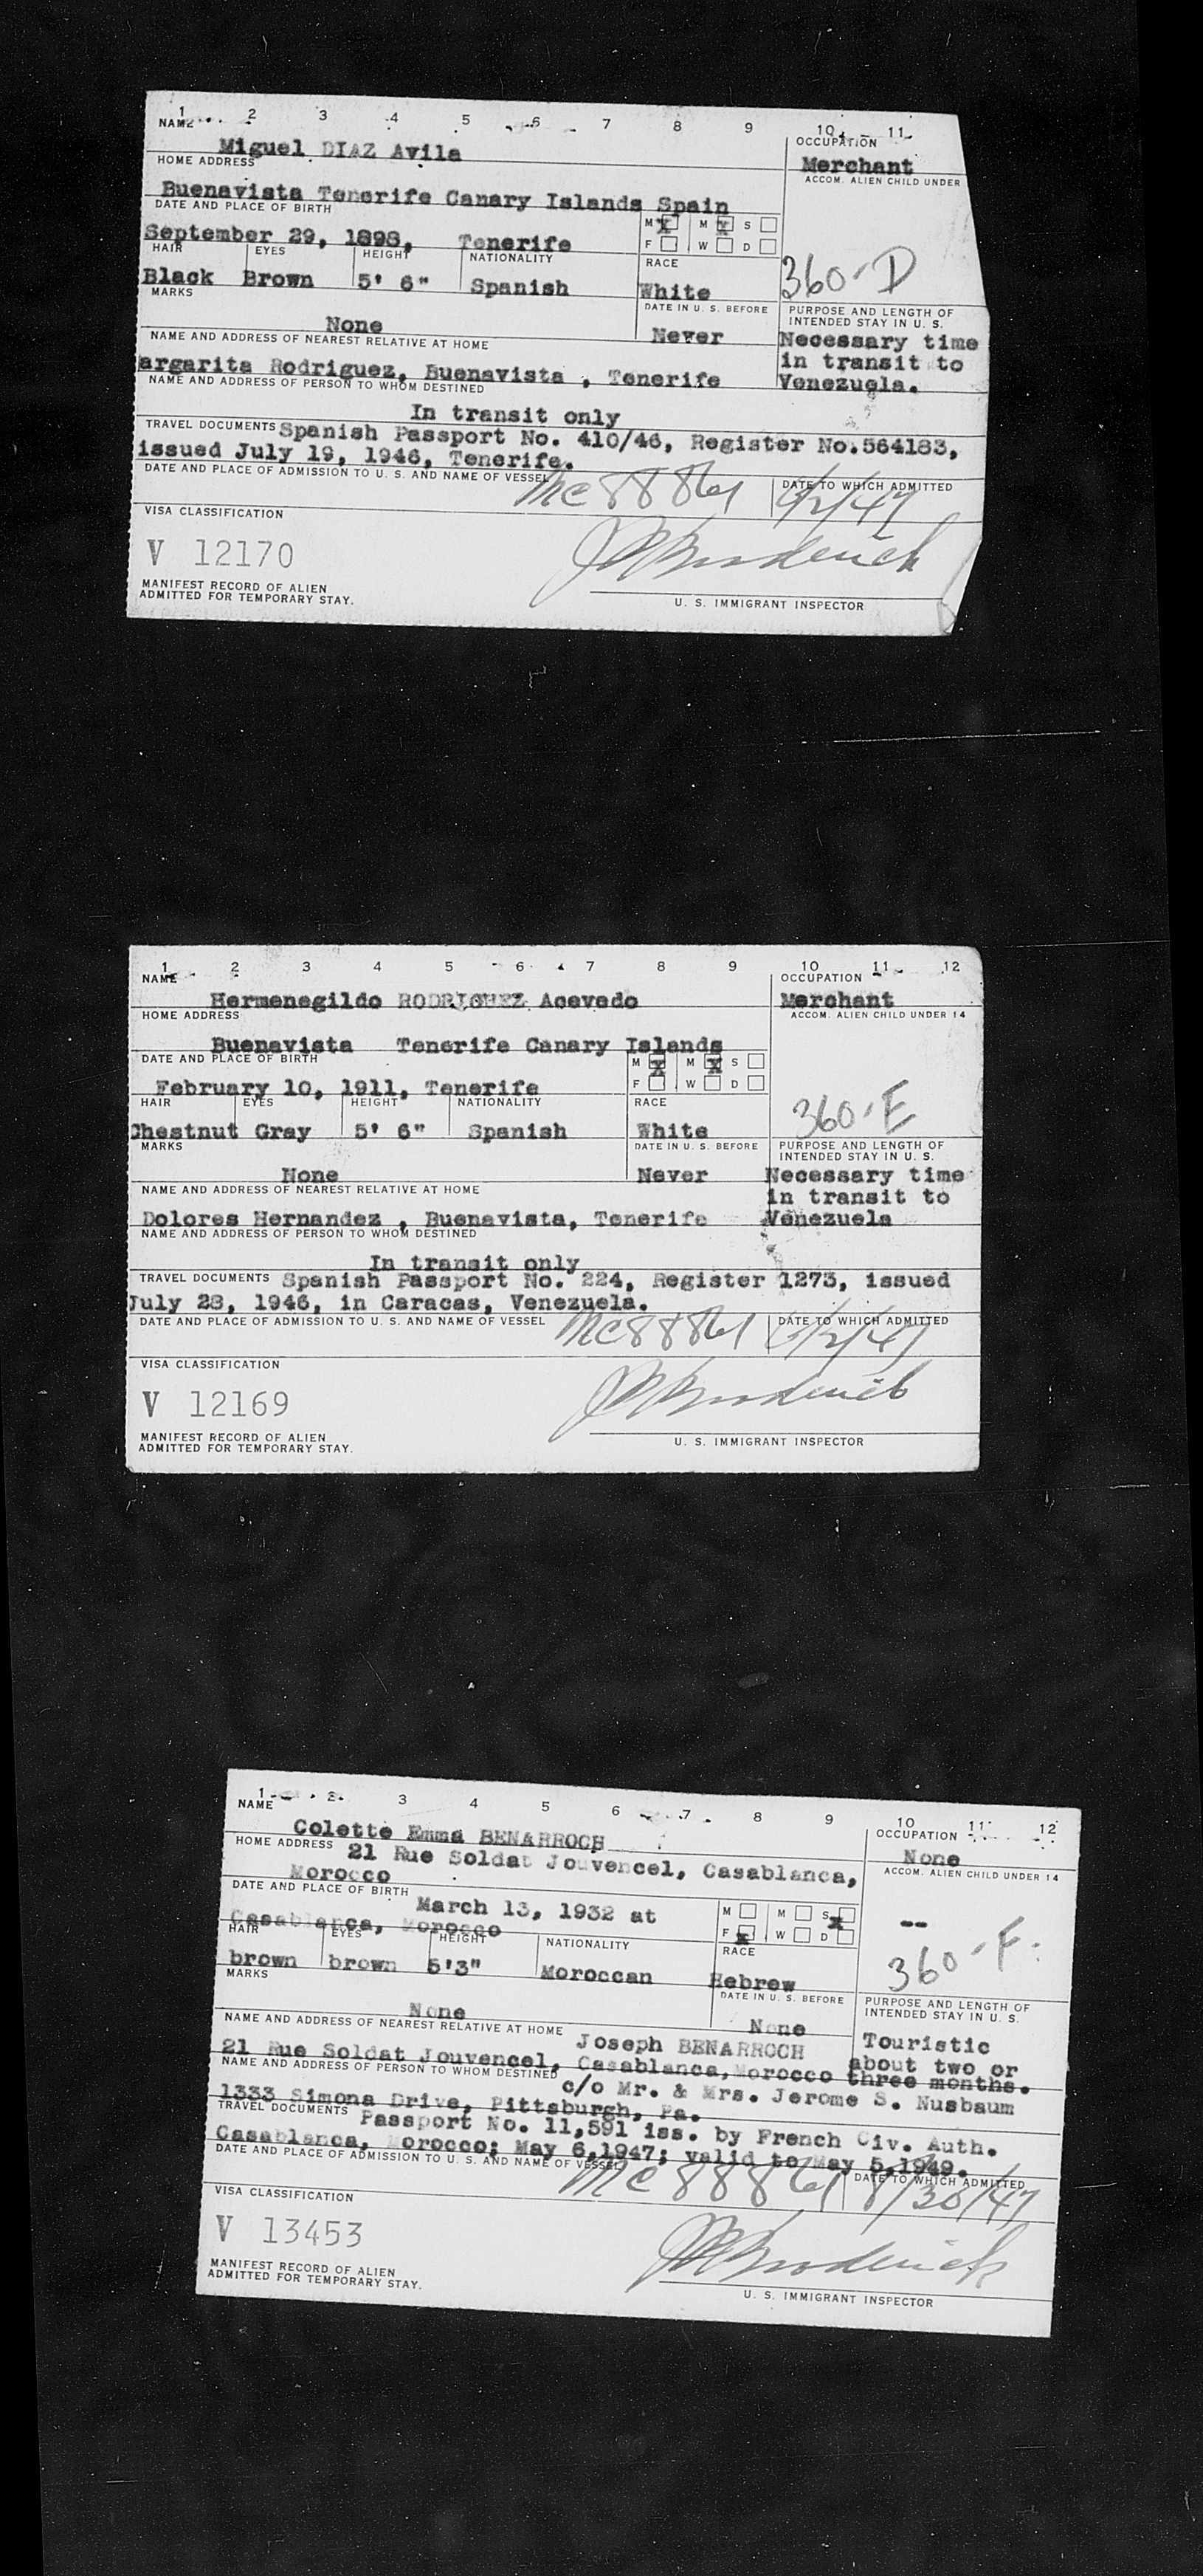 1 2 3 4 5 6 7 8 9 10 11
NAME
OCCUPATION
Miguel DIAZ Avila
Merchant
HOME ADDRESS
ACCOM. ALIEN CHILD UNDER
Buenavista Tenerife Canary Islands Spain
DATE AND PLACE OF BIRTH
M X M X S
September 29, 1898, Tenerife
F W D
HAIR EYES HEIGHT NATIONALITY RACE
360-D
Black Brown 5' 6" Spanish White
MARKS DATE IN U. S. BEFORE
PURPOSE AND LENGTH OF
INTENDED STAY IN U. S.
None Never
Necessary time
in transit to
Venezuela.
NAME AND ADDRESS OF NEAREST RELATIVE AT HOME
argarita Rodriguez, Buenavista , Tenerife
NAME AND ADDRESS OF PERSON TO WHOM DESTINED
In transit only
TRAVEL DOCUMENTS Spanish Passport No. 410/46, Register No.564183,
issued July 19, 1946, Tenerife.
DATE AND PLACE OF ADMISSION TO U. S. AND NAME OF VESSEL DATE TO WHICH ADMITTED
Mc88861
VISA CLASSIFICATION
V 12170
MANIFEST RECORD OF ALIEN
ADMITTED FOR TEMPORARY STAY.
U. S. IMMIGRANT INSPECTOR
1 2 3 4 5 6 7 8 9 10 11 12
NAME
OCCUPATION
Hermenegildo RODRIGUEZ Acevedo
Merchant
HOME ADDRESS
ACCOM. ALIEN CHILD UNDER 14
Buenavista Tenerife Canary Islands
DATE AND PLACE OF BIRTH
M X M X S
February 10, 1911, Tenerife
F W D
HAIR EYES HEIGHT NATIONALITY RACE
360-E
Chestnut Gray 5' 6" Spanish White
MARKS DATE IN U. S. BEFORE
PURPOSE AND LENGTH OF
INTENDED STAY IN U. S.
None Never
Necessary time
in transit to
Venezuela
NAME AND ADDRESS OF NEAREST RELATIVE AT HOME
Dolores Hernandez , Buenavista, Tenerife
NAME AND ADDRESS OF PERSON TO WHOM DESTINED
In transit only
TRAVEL DOCUMENTS Spanish Passport No. 224, Register 1273, issued
July 28, 1946, in Caracas, Venezuela.
DATE AND PLACE OF ADMISSION TO U. S. AND NAME OF VESSEL DATE TO WHICH ADMITTED
Mc88861
VISA CLASSIFICATION
V 12169
MANIFEST RECORD OF ALIEN
ADMITTED FOR TEMPORARY STAY.
U. S. IMMIGRANT INSPECTOR
1 2 3 4 5 6 7 8 9 10 11 12
NAME
OCCUPATION
Colette Emma BENARROCH
None
HOME ADDRESS 21 Rue Soldat Jouvencel, Casablanca,
ACCOM. ALIEN CHILD UNDER 14
Morocco
DATE AND PLACE OF BIRTH March 13, 1932 at
M M S X
--
Casablanca, Morocco
F X W D
HAIR EYES HEIGHT NATIONALITY RACE
360-F
brown brown 5'3" Moroccan Hebrew
MARKS DATE IN U. S. BEFORE
PURPOSE AND LENGTH OF
INTENDED STAY IN U. S.
None None
Touristic
about two or
three months.
NAME AND ADDRESS OF NEAREST RELATIVE AT HOME Joseph BENARROCH
21 Rue Soldat Jouvencel, Casablanca, Morocco
NAME AND ADDRESS OF PERSON TO WHOM DESTINED c/o Mr. & Mrs. Jerome S. Nusbaum
1333 Simona Drive, Pittsburgh, Pa.
TRAVEL DOCUMENTS Passport No. 11,591 iss. by French Civ. Auth.
Casablanca, Morocco; May 6,1947; valid to May 5,1949.
DATE AND PLACE OF ADMISSION TO U. S. AND NAME OF VESSEL DATE TO WHICH ADMITTED
Mc 88861 8/30/47
VISA CLASSIFICATION
V 13453
MANIFEST RECORD OF ALIEN
ADMITTED FOR TEMPORARY STAY.
U. S. IMMIGRANT INSPECTOR